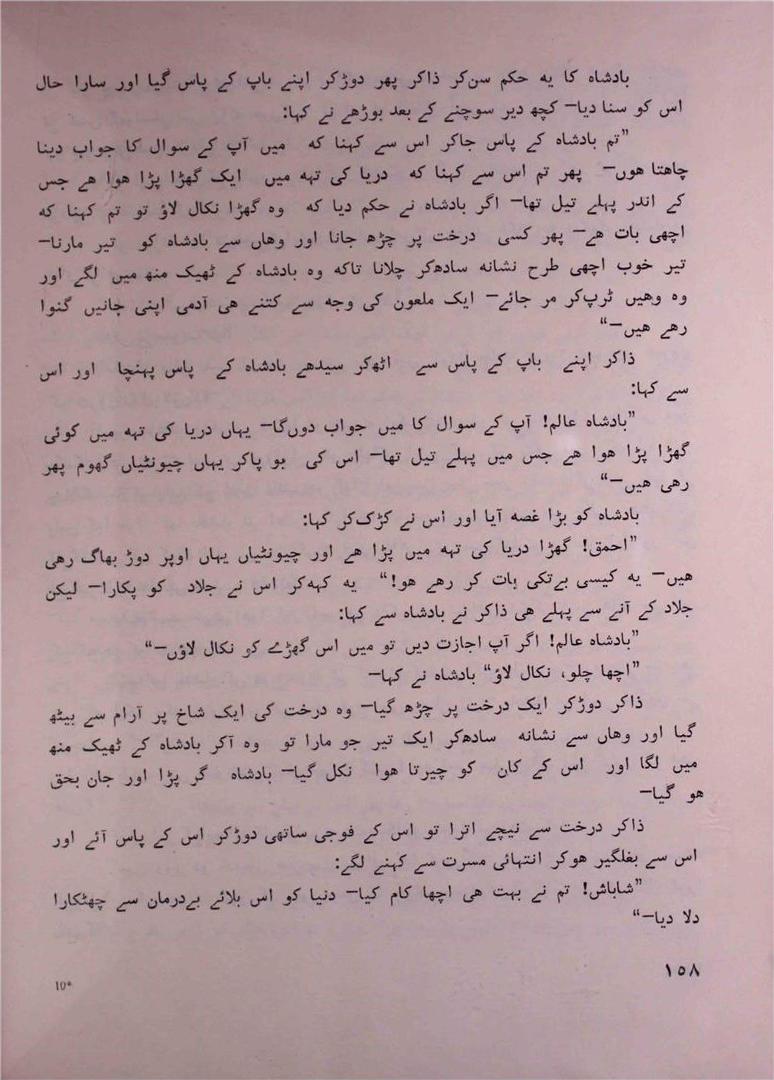 بادشاہ کا یہ حکم سن‌کر ذاکر پھر دوڑکر اپنے باپ کے پاس گیا اور سارا حال
اس کو سنا دیا— کچھ دیر سوچنے کے بعد بوڑھے نے کہا:
”تم بادشاہ کے پاس جاکر اس سے کہنا کہ میں آپ کے سوال کا جواب دینا
چاھتا ھوں— پھر تم اس سے کہنا کہ دریا کی تہہ میں ایک گھڑا پڑا ھوا ھے جس
کے اندر پہلے تیل تھا— اگر بادشاہ نے حکم دیا کہ وہ گھڑا نکال لاؤ تو تم کہنا کہ
اچھی بات ھے— پھر کسی درخت پر چڑھ جانا اور وھاں سے بادشاہ کو تیر مارنا—
تیر خوب اچھی طرح نشانہ سادھ‌کر چلانا تاکہ وہ بادشاہ کے ٹھیک منھ میں لگے اور
وہ وھیں تڑپ‌کر مر جائے— ایک ملعون کی وجہ سے کتنے ھی آدمی اپنی جانیں گنوا
رھے ھیں—“
ذاکر اپنے باپ کے پاس سے اٹھ‌کر سیدھے بادشاہ کے پاس پہنچا اور اس
سے کہا:
”بادشاہ عالم! آپ کے سوال کا میں جواب دوں‌گا— یہاں دریا کی تہہ میں کوئی
گھڑا پڑا ھوا ھے جس میں پہلے تیل تھا— اس کی بو پاکر یہاں چیونٹیاں گھوم پھر
رھی ھیں—“
بادشاہ کو بڑا غصہ آیا اور اس نے کڑک‌کر کہا:
”احمق! گھڑا دریا کی تہہ میں پڑا ھے اور چیونٹیاں یہاں اوپر دوڑ بھاگ رھی
ھیں— یہ کیسی بےتکی بات کر رھے ھو!“ یہ کہہ‌کر اس نے جلاد کو پکارا— لیکن
جلاد کے آنے سے پہلے ھی ذاکر نے بادشاہ سے کہا:
”بادشاہ عالم! اگر آپ اجازت دیں تو میں اس گھڑے کو نکال لاؤں—“
”اچھا چلو، نکال لاؤ“ بادشاہ نے کہا—
ذاکر دوڑکر ایک درخت پر چڑھ گیا— وہ درخت کی ایک شاخ پر آرام سے بیٹھ
گیا اور وھاں سے نشانہ سادھ‌کر ایک تیر جو مارا تو وہ آکر بادشاہ کے ٹھیک منھ
میں لگا اور اس کے کان کو چیرتا ھوا نکل گیا— بادشاہ گر پڑا اور جان بحق
ھو گیا—
ذاکر درخت سے نیچے اترا تو اس کے فوجی ساتھی دوڑکر اس کے پاس آئے اور
اس سے بغلگیر ھوکر انتہائی مسرت سے کہنے لگے:
”شاباش! تم نے بہت ھی اچھا کام کیا— دنیا کو اس بلائے بےدرمان سے چھٹکارا
دلا دیا—“
۱۵۸
10*